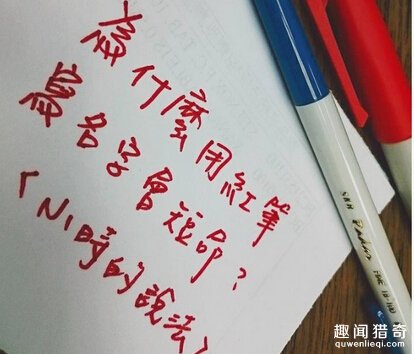 為什麼用紅筆
寫名字會短命?
(小時的說法)
SKB
趣闻猎奇
quwenlieqi.com